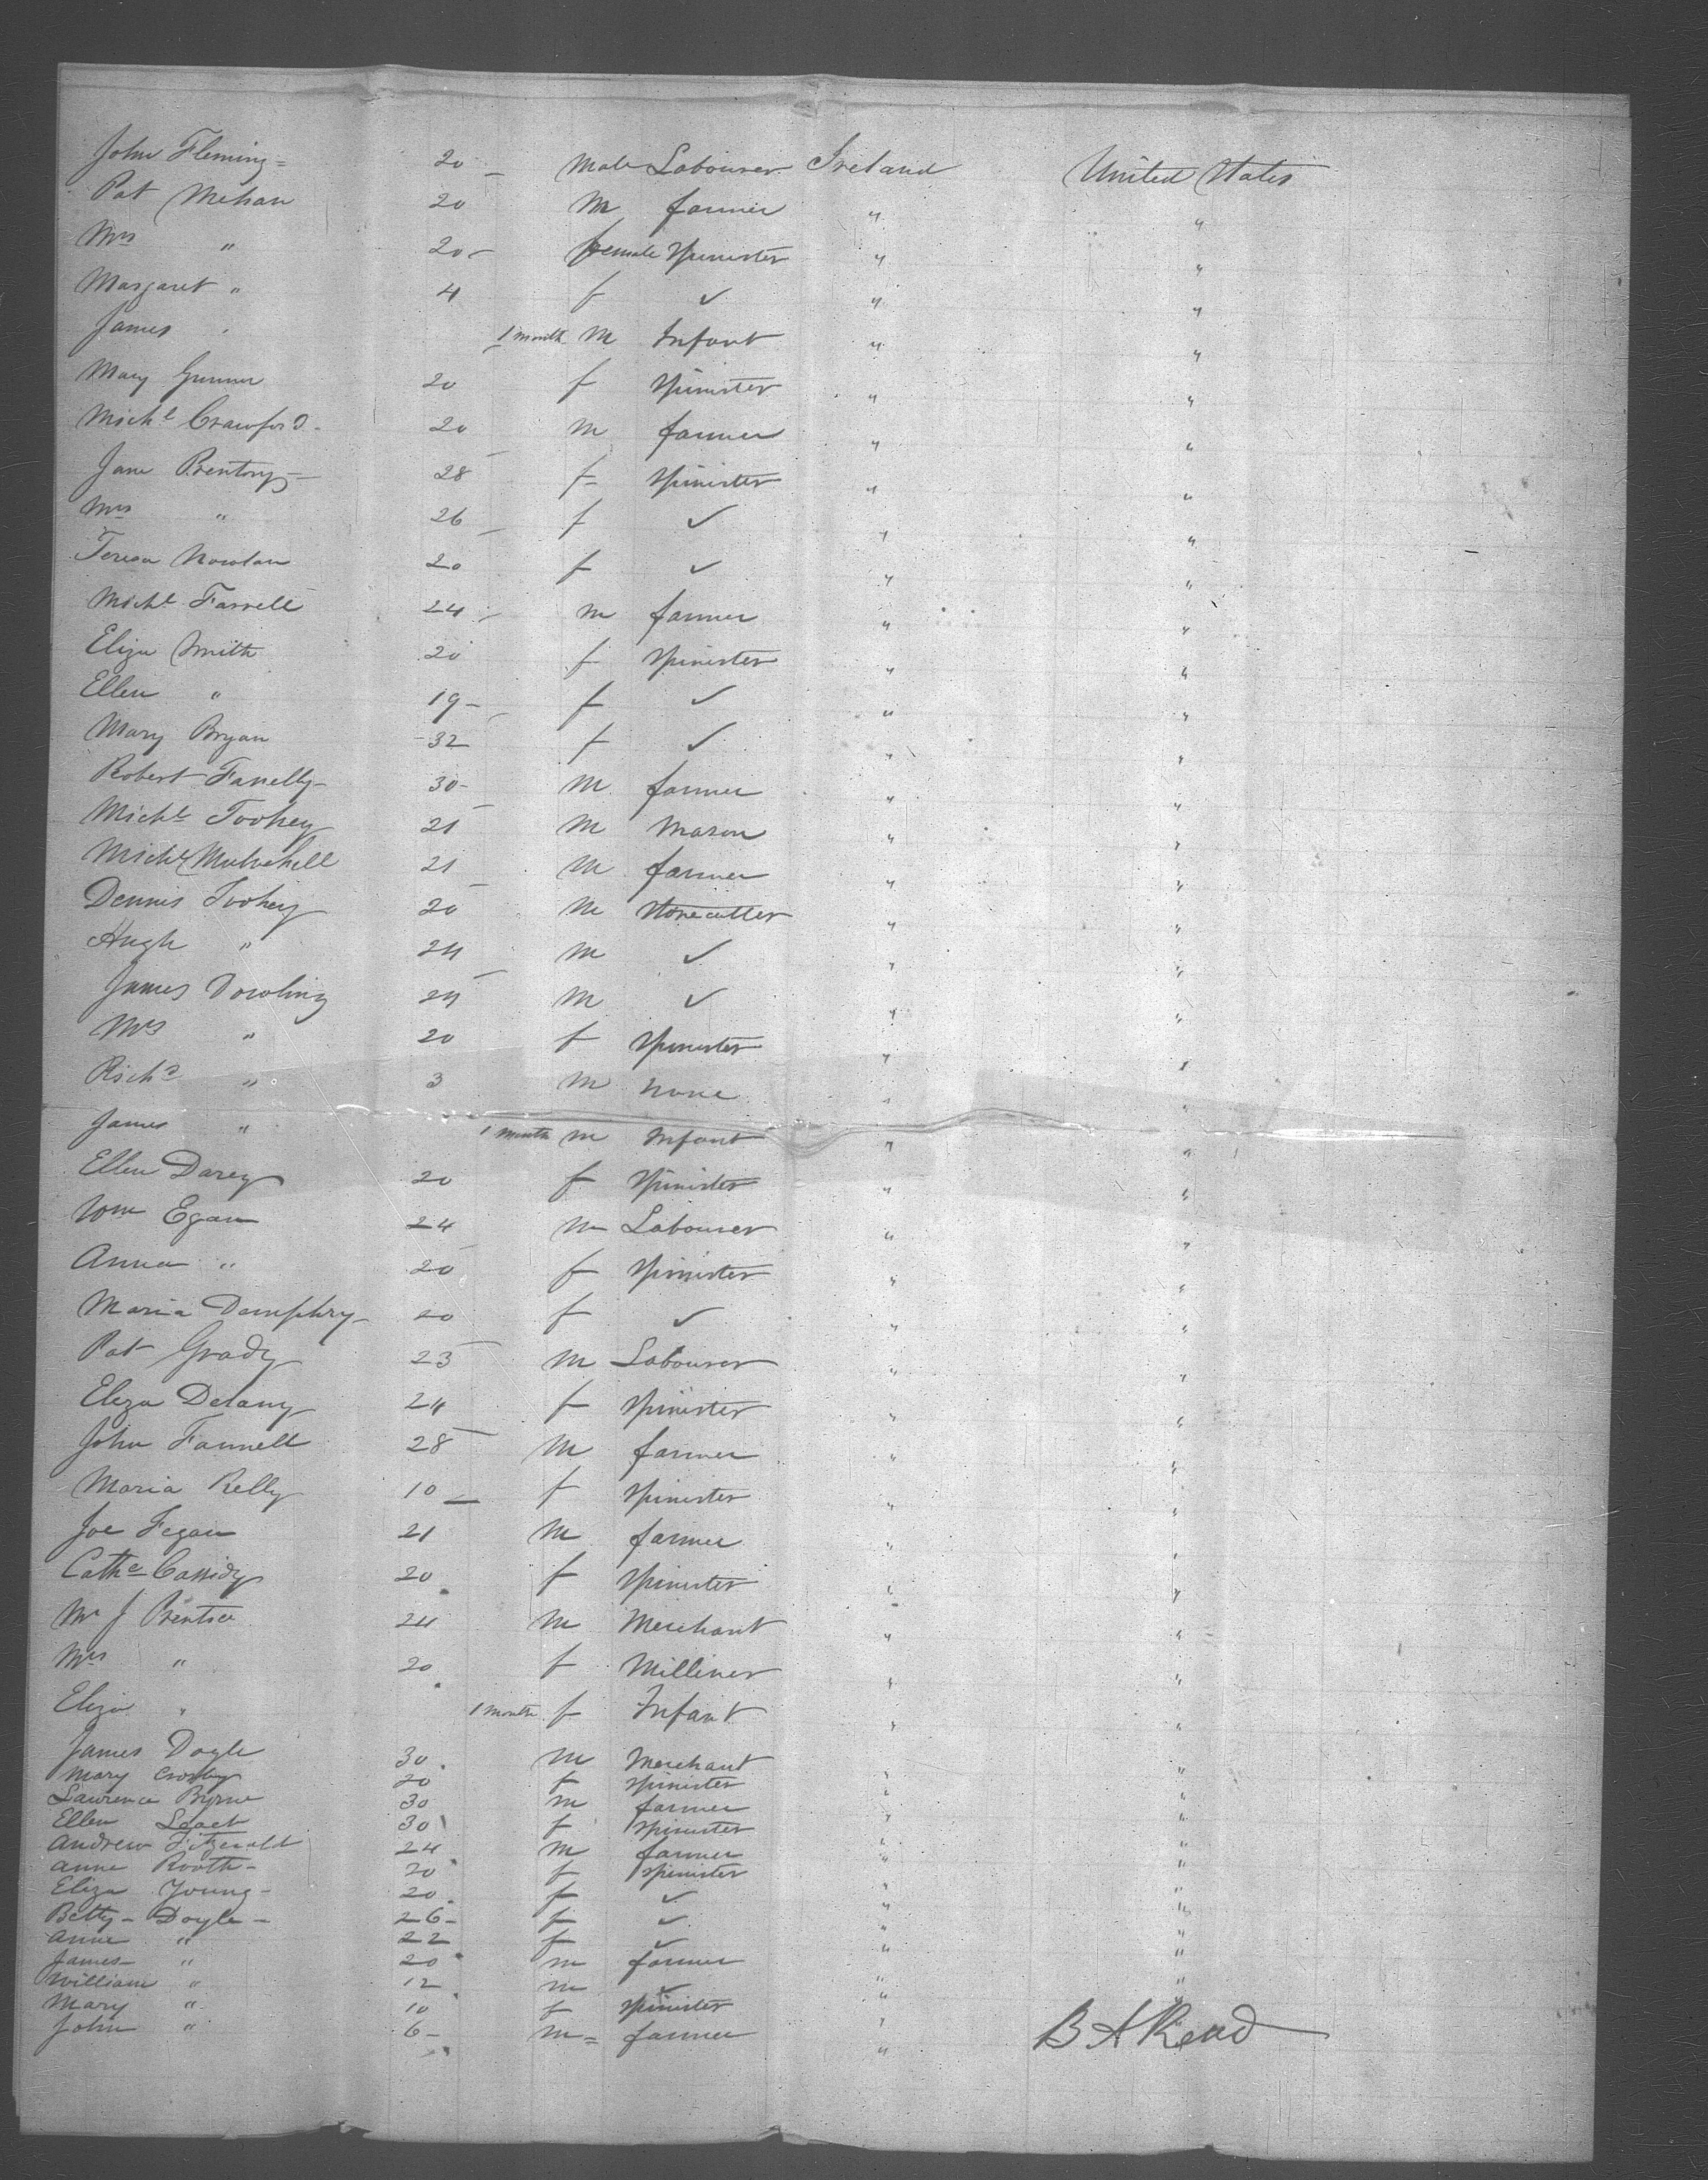 John Fleming = 20 - Male Labourer Ireland United States
Pat Mehan 20 M farmer " "
Mrs " 20 - female Spinister " "
Margaret " 4 f ✓ " "
James " 1 month M Infant " "
Mary 20 f Spinister " "
Michl Crawford - 20 - M farmer " "
Jane 28 f Spinister " "
Mrs " 26 - f ✓ " "
Teresa Nowlan 20 f ✓ " "
Michl Farrell 24 - M farmer " "
Eliza Smith 20 f Spinister " "
Ellen " 19 - f ✓ " "
Mary Bryan 32 f ✓ " "
Robert Farrelly - 30 - M farmer " "
Michl Toohey 21 M Mason " "
Michl Mulvehill 21 - M farmer " "
Dennis Toohey 20 M Stonecutter " "
Hugh " 24 - M ✓ " "
James Dowling 24 M ✓ " "
Mrs " 20 f Spinister " "
Richd " 3 M none " "
James " 1 month M Infant " "
Ellen Darcy 20 f Spinister " "
Wm Egan 24 M Labourer " "
Anna " 20 f Spinister " "
Maria Demphry - 20 f ✓ " "
Pat Grady 23 M Labourer " "
Eliza Delany 24 f Spinister " "
John Farrell 28 M farmer " "
Maria Kelly 10 - f Spinister " "
Joe Fegan 21 M farmer " "
Cathe Cassidy 20 f Spinister " "
Mr J 24 M Merchant " "
Mrs " 20 f Milliner " "
Eliza " 1 month f Infant " "
James Doyle 30 M Merchant " "
Mary Crosby 20 f Spinister " "
Lawrence Byrne 30 M farmer " "
Ellen 30 f Spinister " "
Andrew Fitzerald 24 M farmer " "
Anne Rooth - 20 f Spinister " "
Eliza Young - 20 f ✓ " "
Betty - Doyle - 26 - f ✓ " "
Anne " 22 f ✓ " "
James " 20 M farmer " "
William " 12 M ✓ " "
Mary " 10 f Spinister "
John " 6 - M = farmer "
B A Read